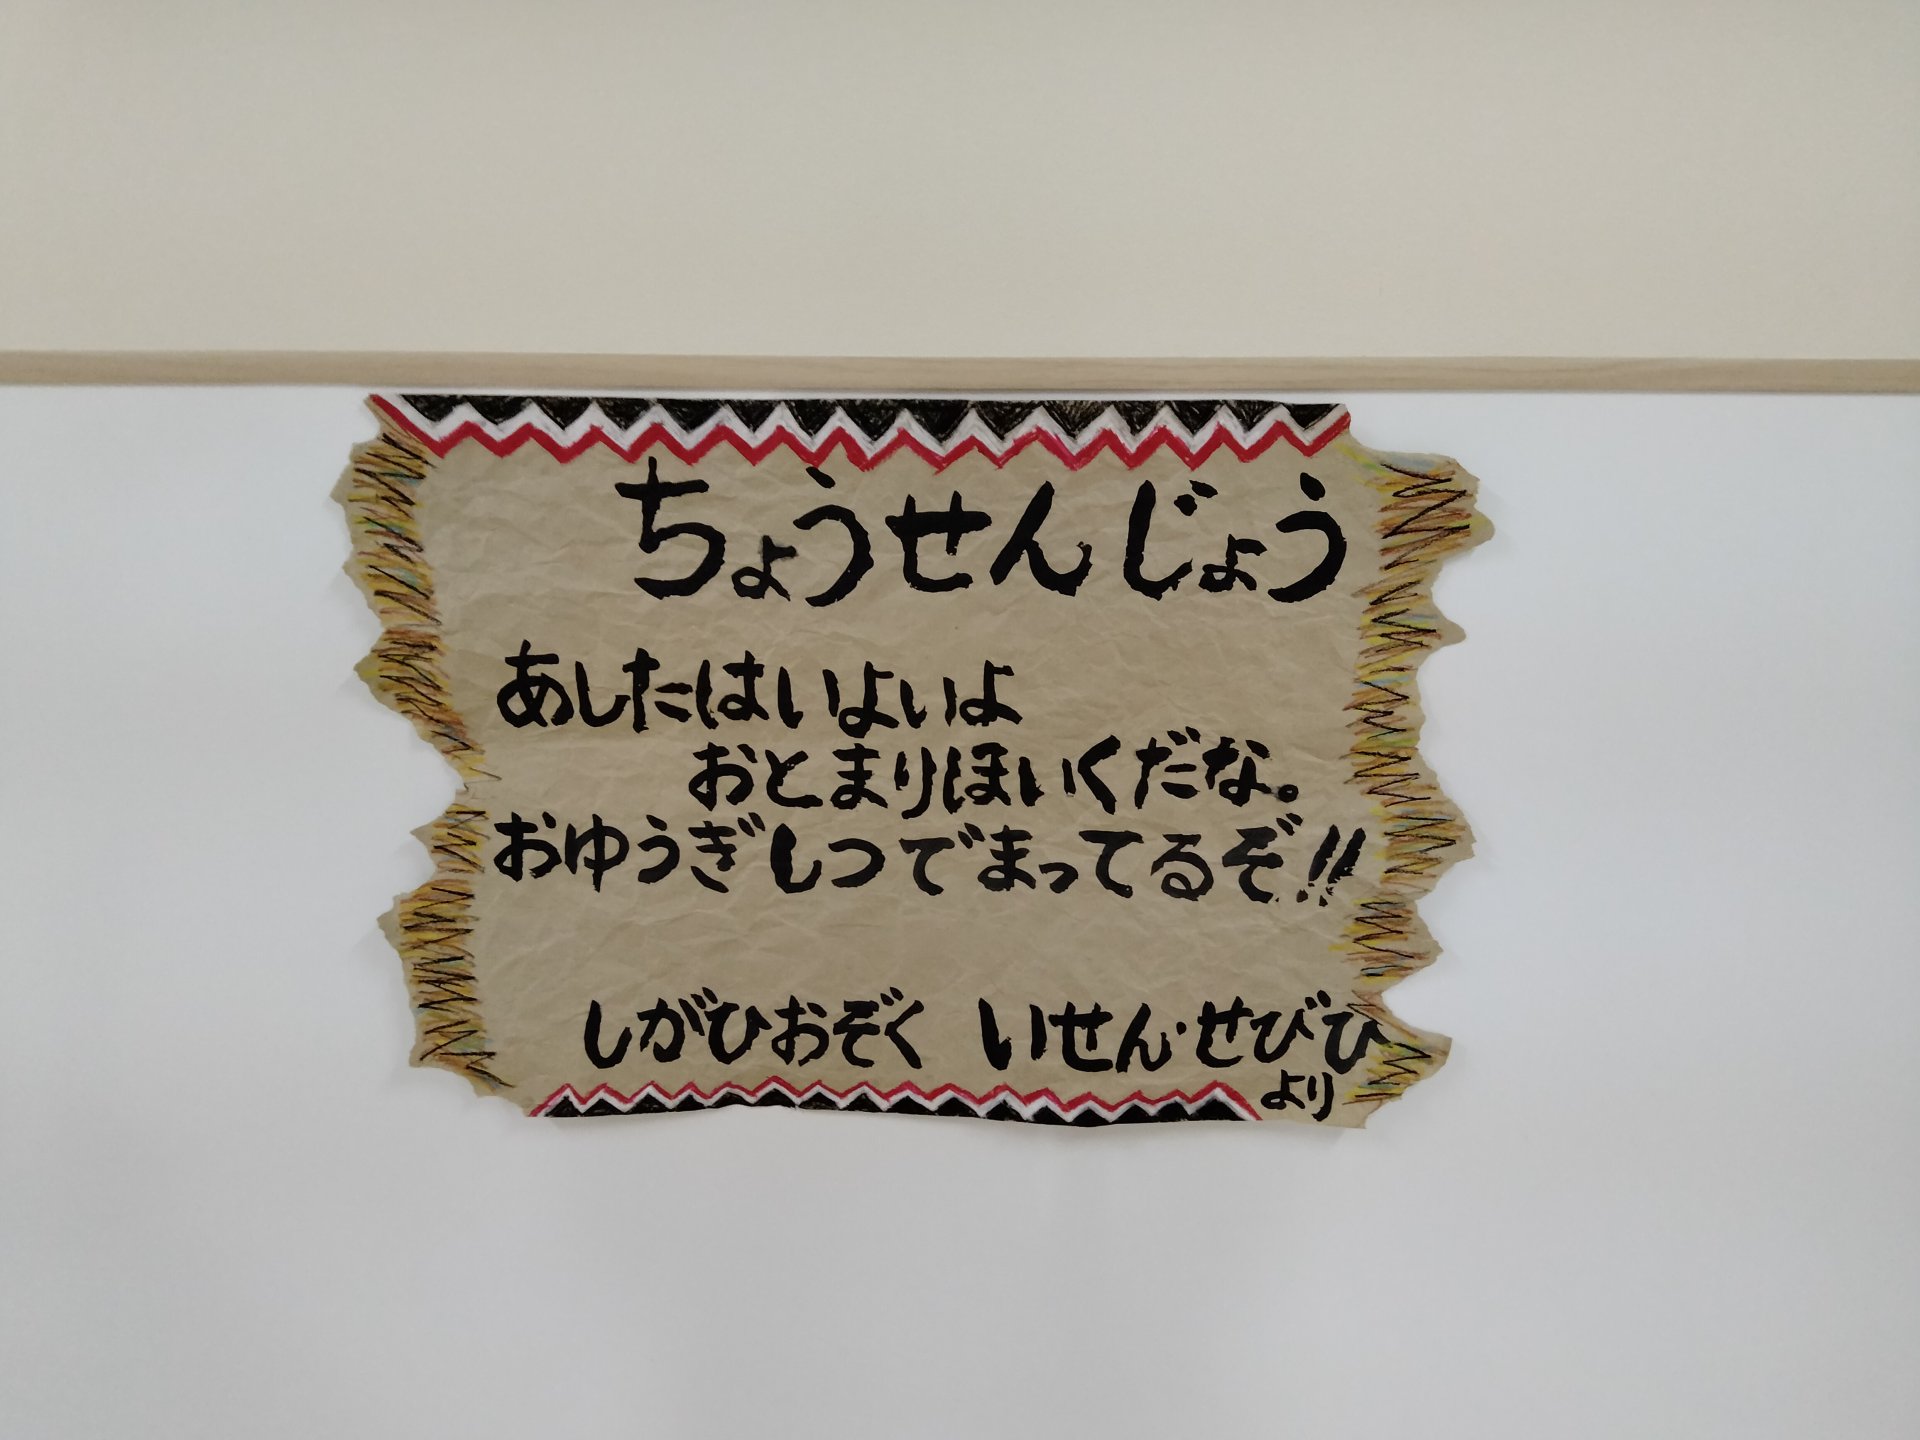 ちょうせんじょう
あしたはいよいよ
おとまりほいくだな。
おゆうぎしつでまってるぞ!!
しがひおぞく いせん・せびひ
より